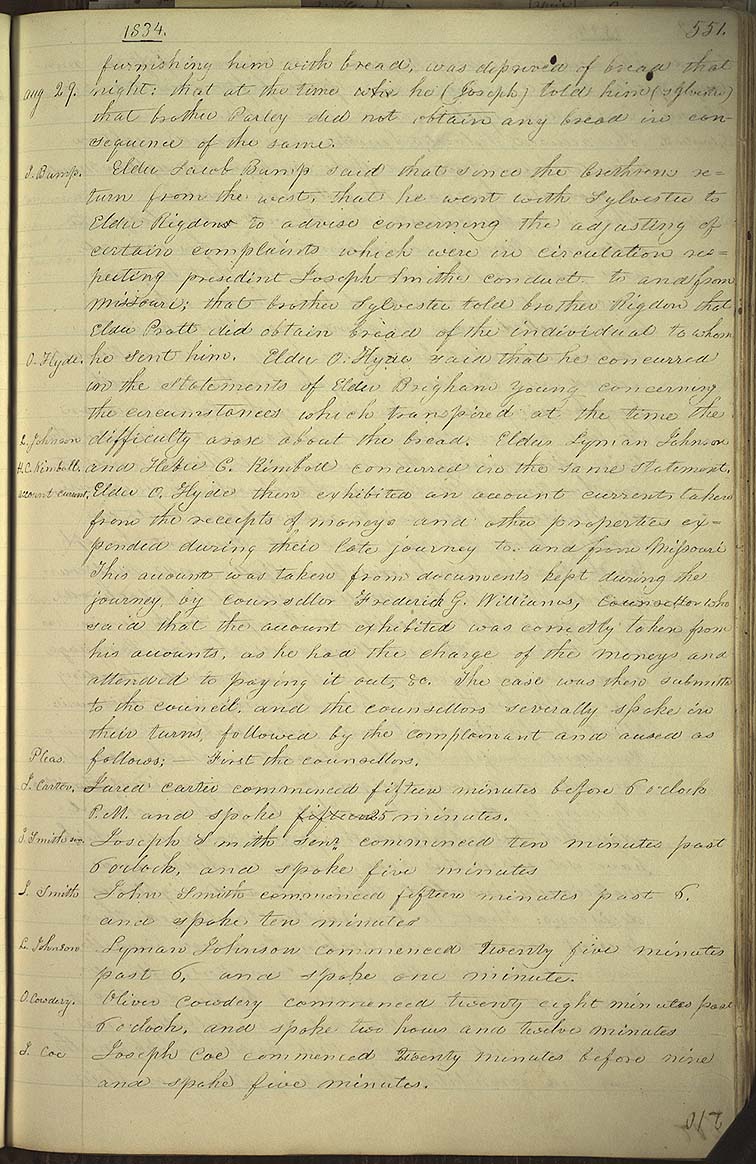 1834.
551.
furnishing him with bread, was deprived of bread that
aug 29. night: that at the time he (Joseph) told him (Sylvester)
that brother Parley did not obtain any bread in con-
sequence of the same.
J. Bump. Elder Jacob Bump said that since the brethren re-
turn from the west, that he went with Sylvester to
Elder Rigdons to advise concerning the adjusting of
certain complaints which were in circulation res=
pecting president Joseph Smiths conduct to and from
Missouri; that brother Sylvester told brother Rigdon that
Elder Pratt did obtain bread of the individual to whom
O. Hyde. he sent him. Elder O. Hyde said that he concurred
in the statements of Elder Brigham Young concerning
the circumstances which transpired at the time the
L. Johnson difficulty arose about the bread. Elders Lyman Johnson
H. C. Kimball. and Heber C. Kimball concurred in the same statement.
account current. Elder O. Hyde then exhibited an account current taken
from the receipts of moneys and other properties ex=
pended during their late journey to and from Missouri
This account was taken from documents kept during the
journey, by counsellor Frederick G. Williams, counsellor who
said that the account exhibited was correctly taken from
his accounts, as he had the charge of the moneys and
attended to paying it out, &c. The case was then submitte
to the council, and the counsellors severally spoke in
their turns, followed by the complainant and accused as
Pleas. follows: — First the counsellors.
J. Carter. Jared Carter commenced fifteen minutes before 6 oclock
P.M. and spoke fifteen 25 minutes.
J. Smith sen. Joseph Smith Senr. commenced ten minutes past
6 oclock, and spoke five minutes
J. Smith John Smith commenced fifteen minutes past 6.
and spoke ten minutes
L. Johnson Lyman Johnson commenced twenty five minutes
past 6, and spoke one minute.
O. Cowdery. Oliver Cowdery commenced twenty eight minutes past
6 oclock, and spoke two hours and twelve minutes
J. Coe Joseph Coe commenced twenty minutes before nine
and spoke five minutes.